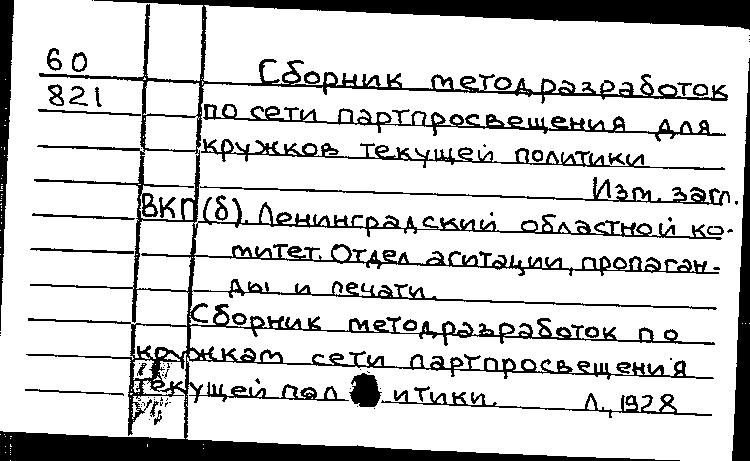 60
821
Сборник методразработок
по сети партпросвещения для
кружков текущей политики
Изм. загл.
ВКП(б). Ленинградский областной ко-
митет. Отдел агитации, пропаган-
ды и печати.
Сборник методразработок по
кружкам сети партпросвещения
текущей политики. Л., 1928